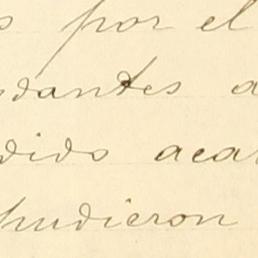 s por el
dantes a
dido aca
pudieron